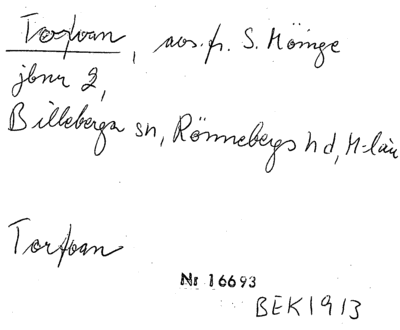 Torfvan, avs. fr. S. Möinge
jbnr 2,
Billeberga sn, Rönnebergs hd, M-län
Torfvan
Nr 16693
BEK 1913